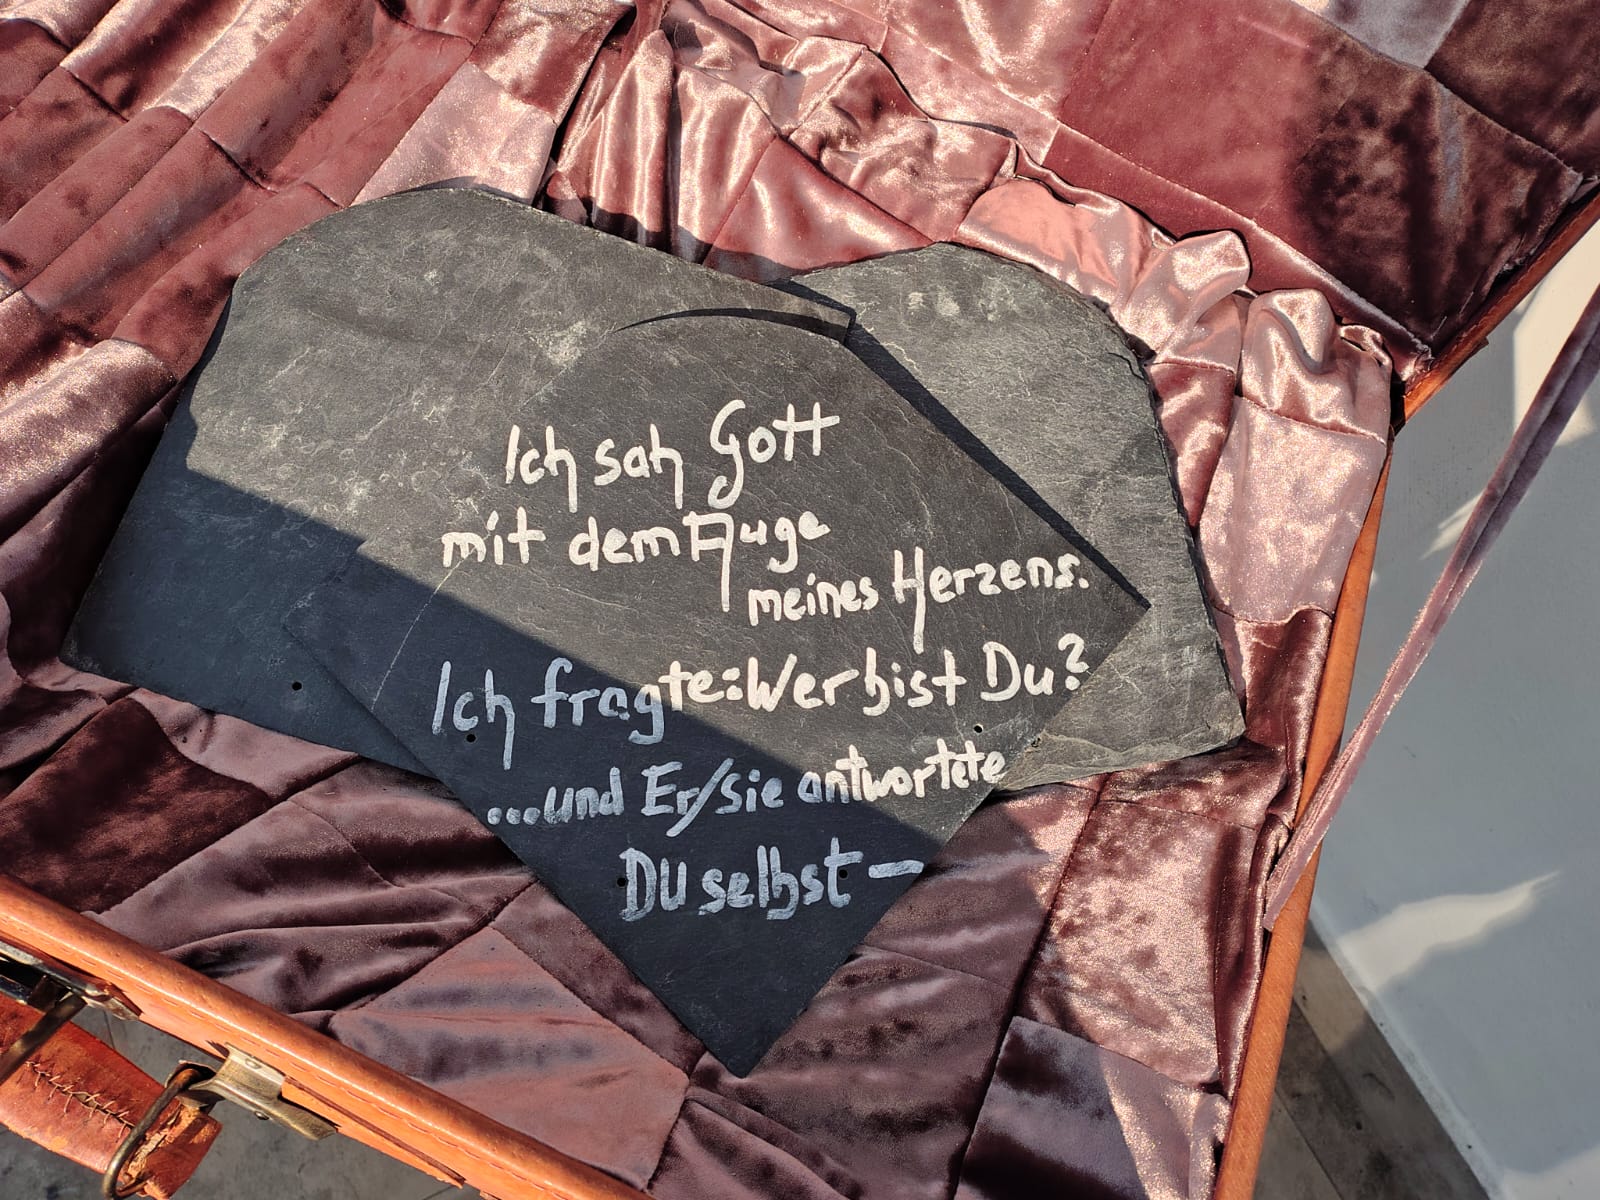 Ich sah Gott
mit dem Auge
meines Herzens.
Ich fragte: Wer bist Du?
...und Er/sie antwortete
DU selbst –